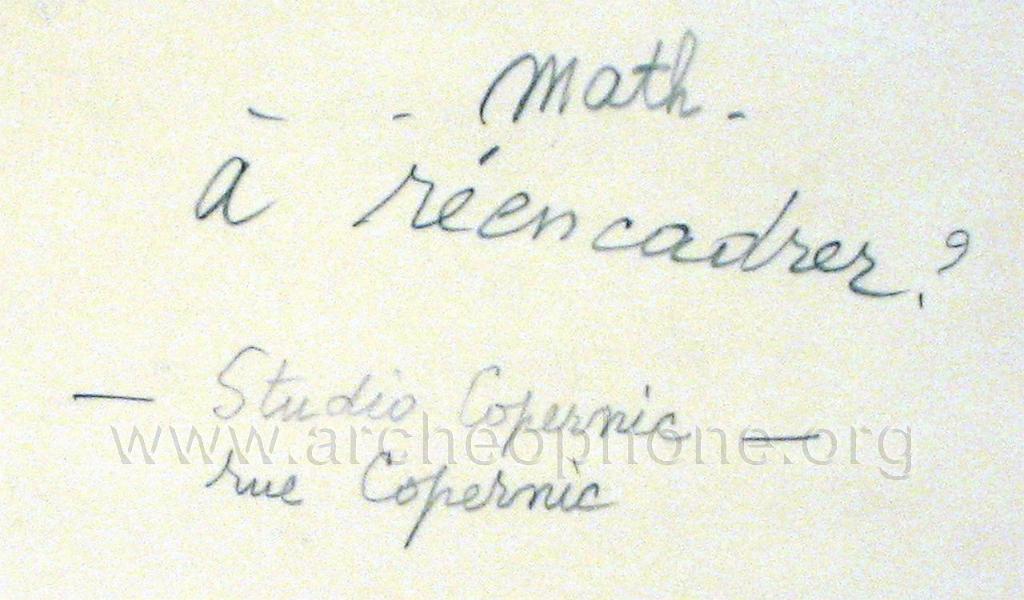 - - math -
à réencadrer?
— Studio Copernic —
www.archeophone.org
rue Copernic